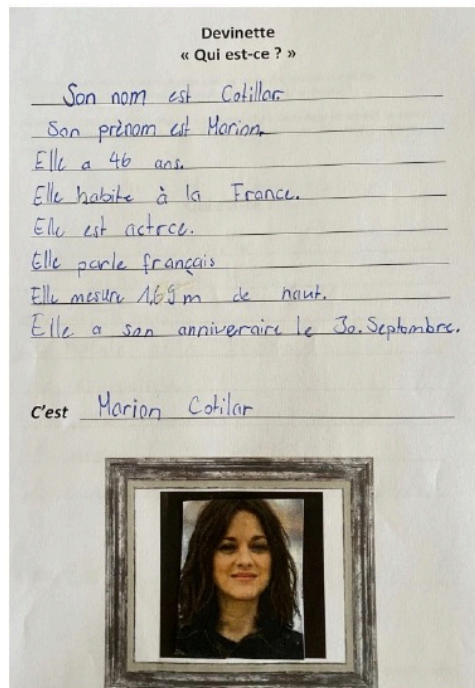 Devinette
« Qui est-ce ? »
Son nom est Cotillar
Son prènom est Marion.
Elle a 46 ans.
Elle habite à la France.
Elle est actrce.
Elle parle français
Elle mesure 1,69 m de haut.
Elle a son anniveraire le 30. Septombre.
C'est Marion Cotilar